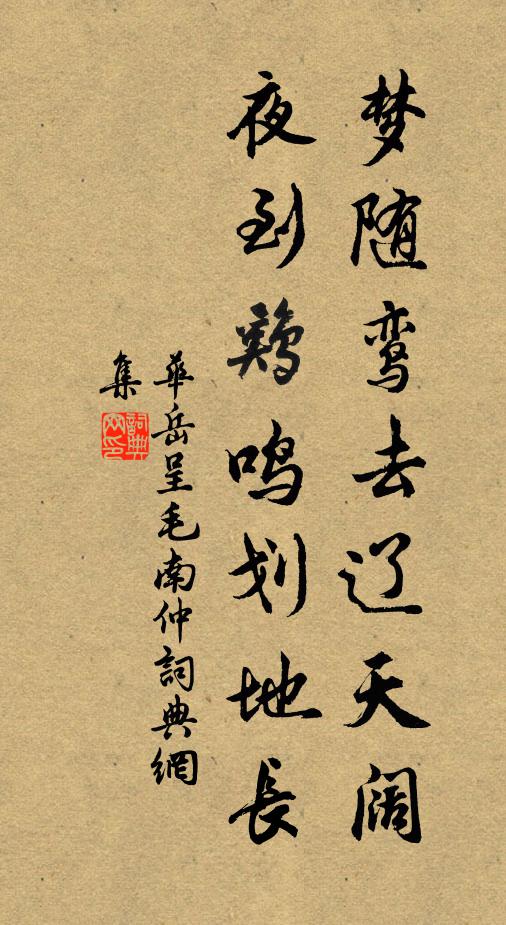 梦随鸾去辽天阔
夜到鷄鸣划地長
華岳呈毛南仲詞典網
集
詞典網印